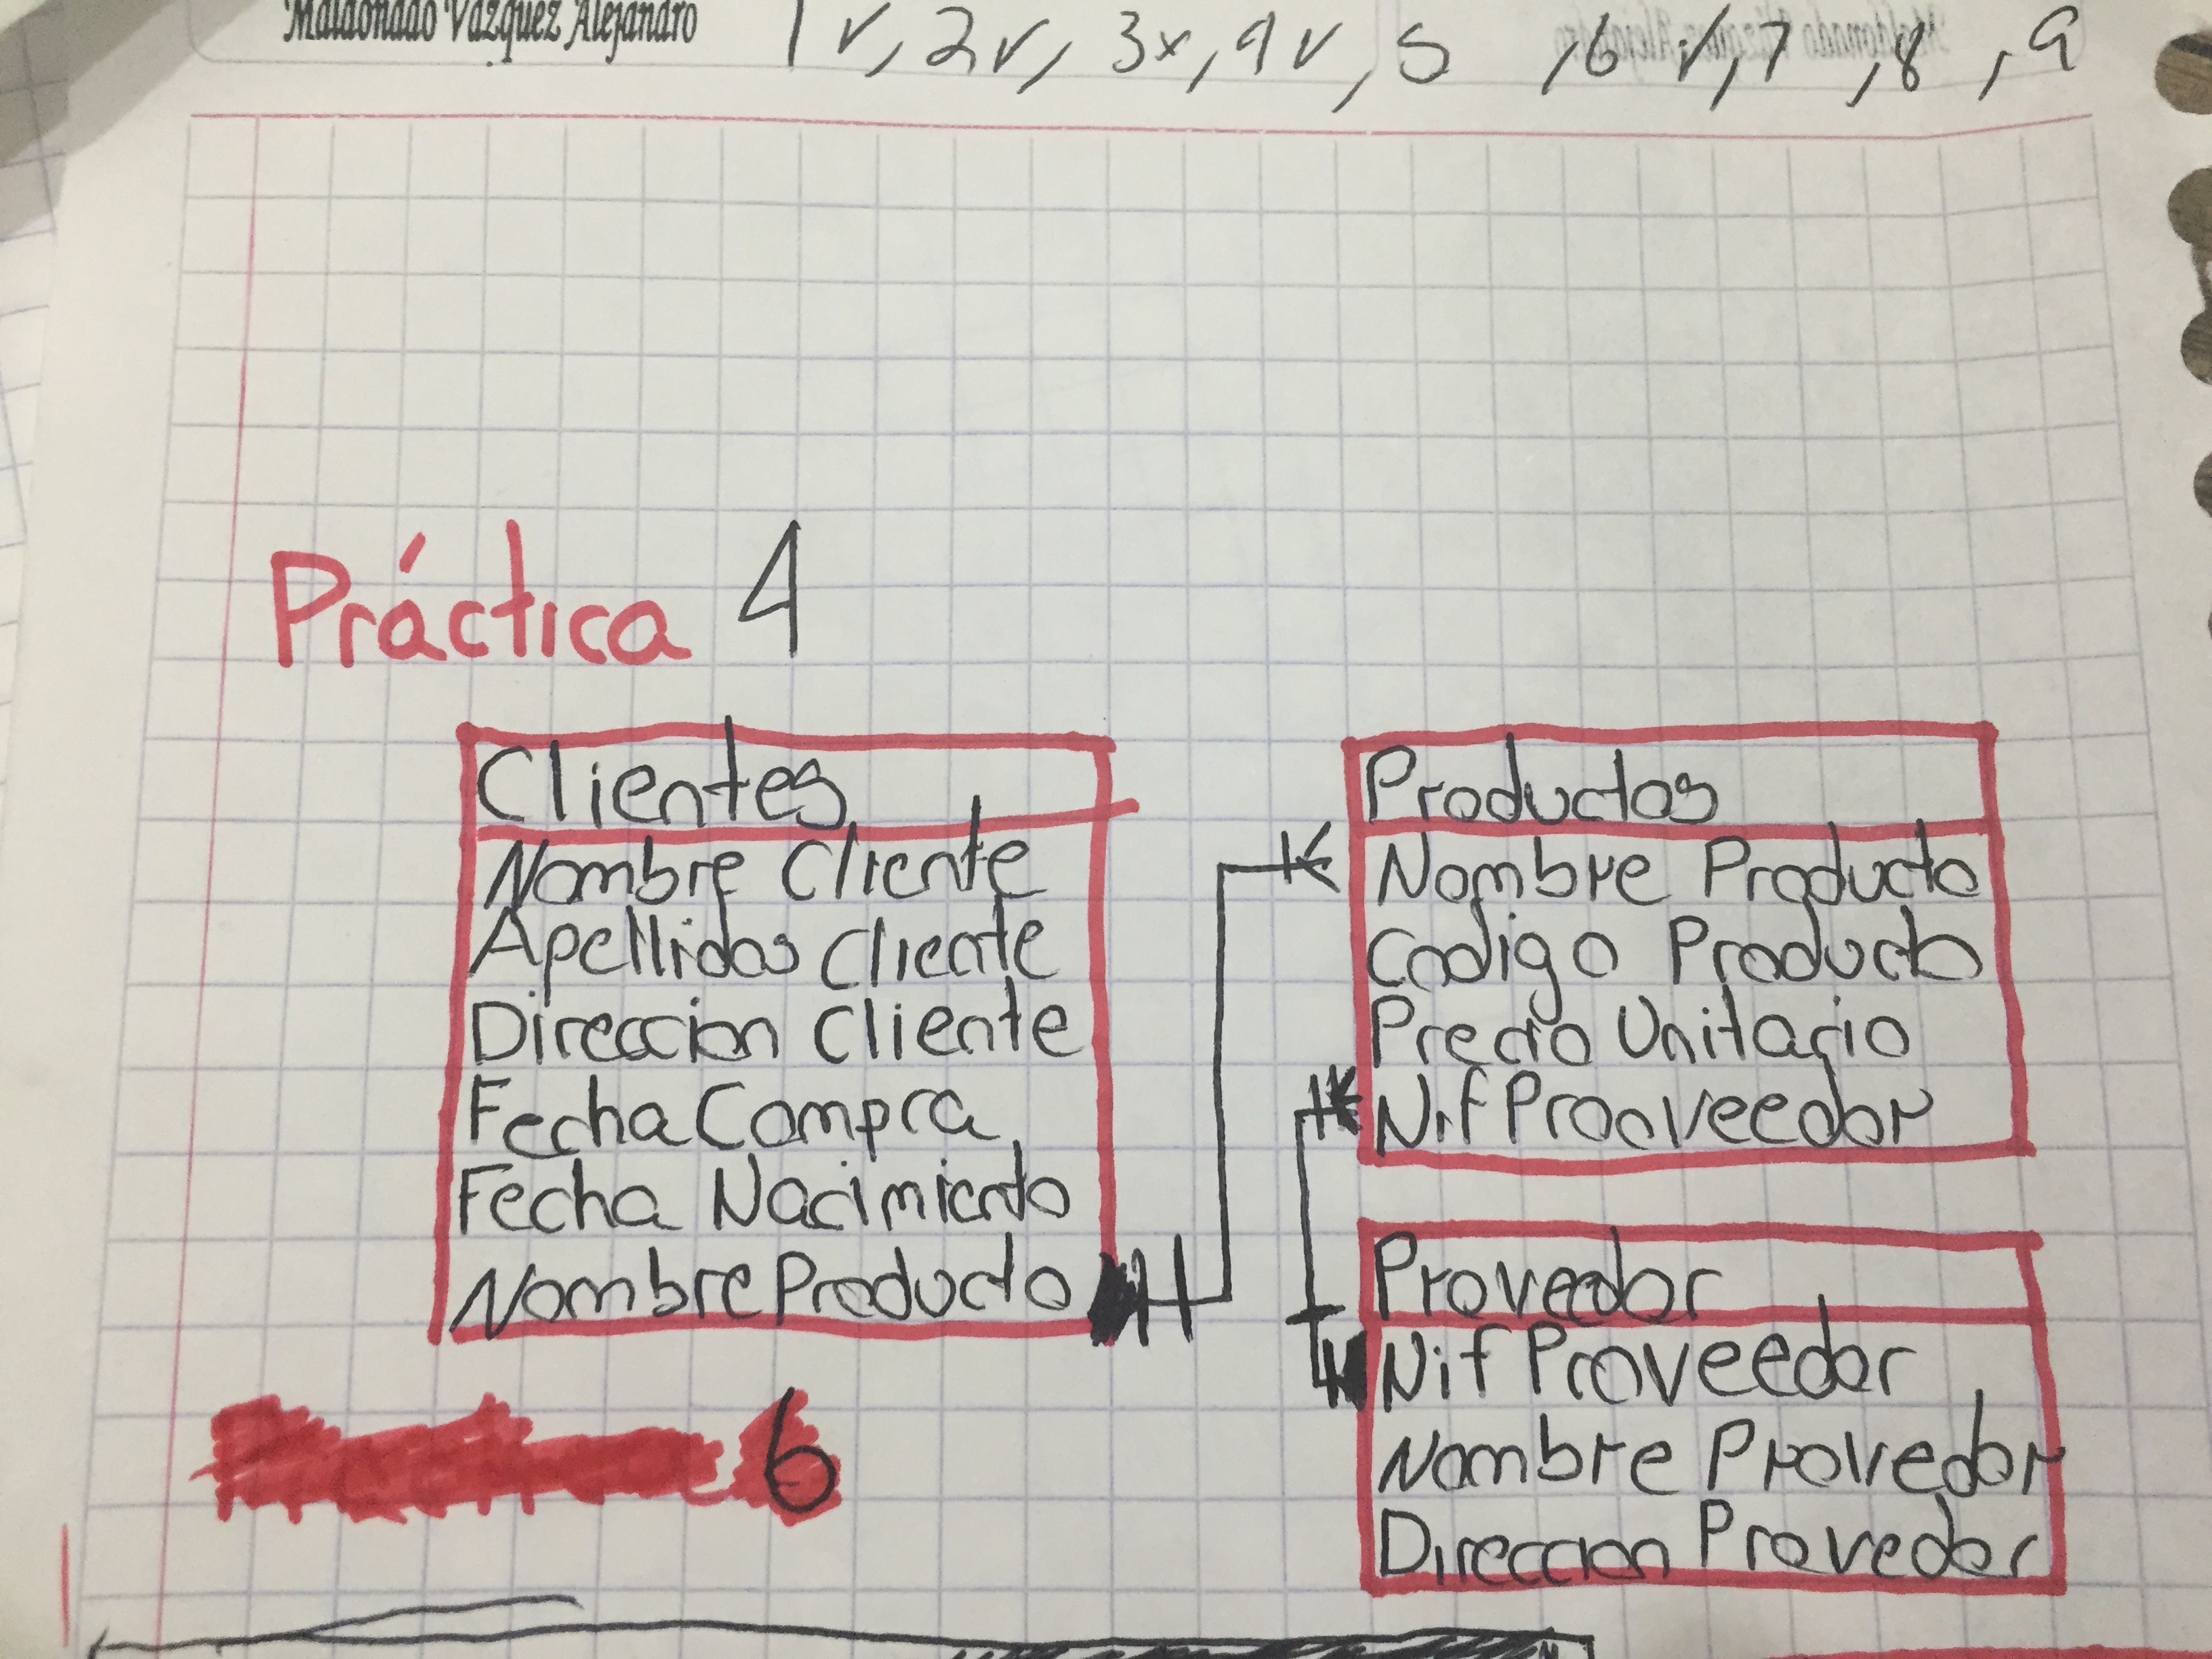 Maldonado Vazquez Alejandro
1 v, 2 v, 3x, 4 v, 5 16 v, 17, 18, 9
Práctica 1
Clientes
Nombre Cliente
Apellidos Cliente
Direccion Cliente
Fecha Compra
Fecha Nacimiento
Nombre Producto
Productos
Nombre Producto
Codigo Producto
Precio Unitario
Nif Proovecdor
Provedor
Nif Proveedor
Nombre Provedor
Direccion Provedor
6